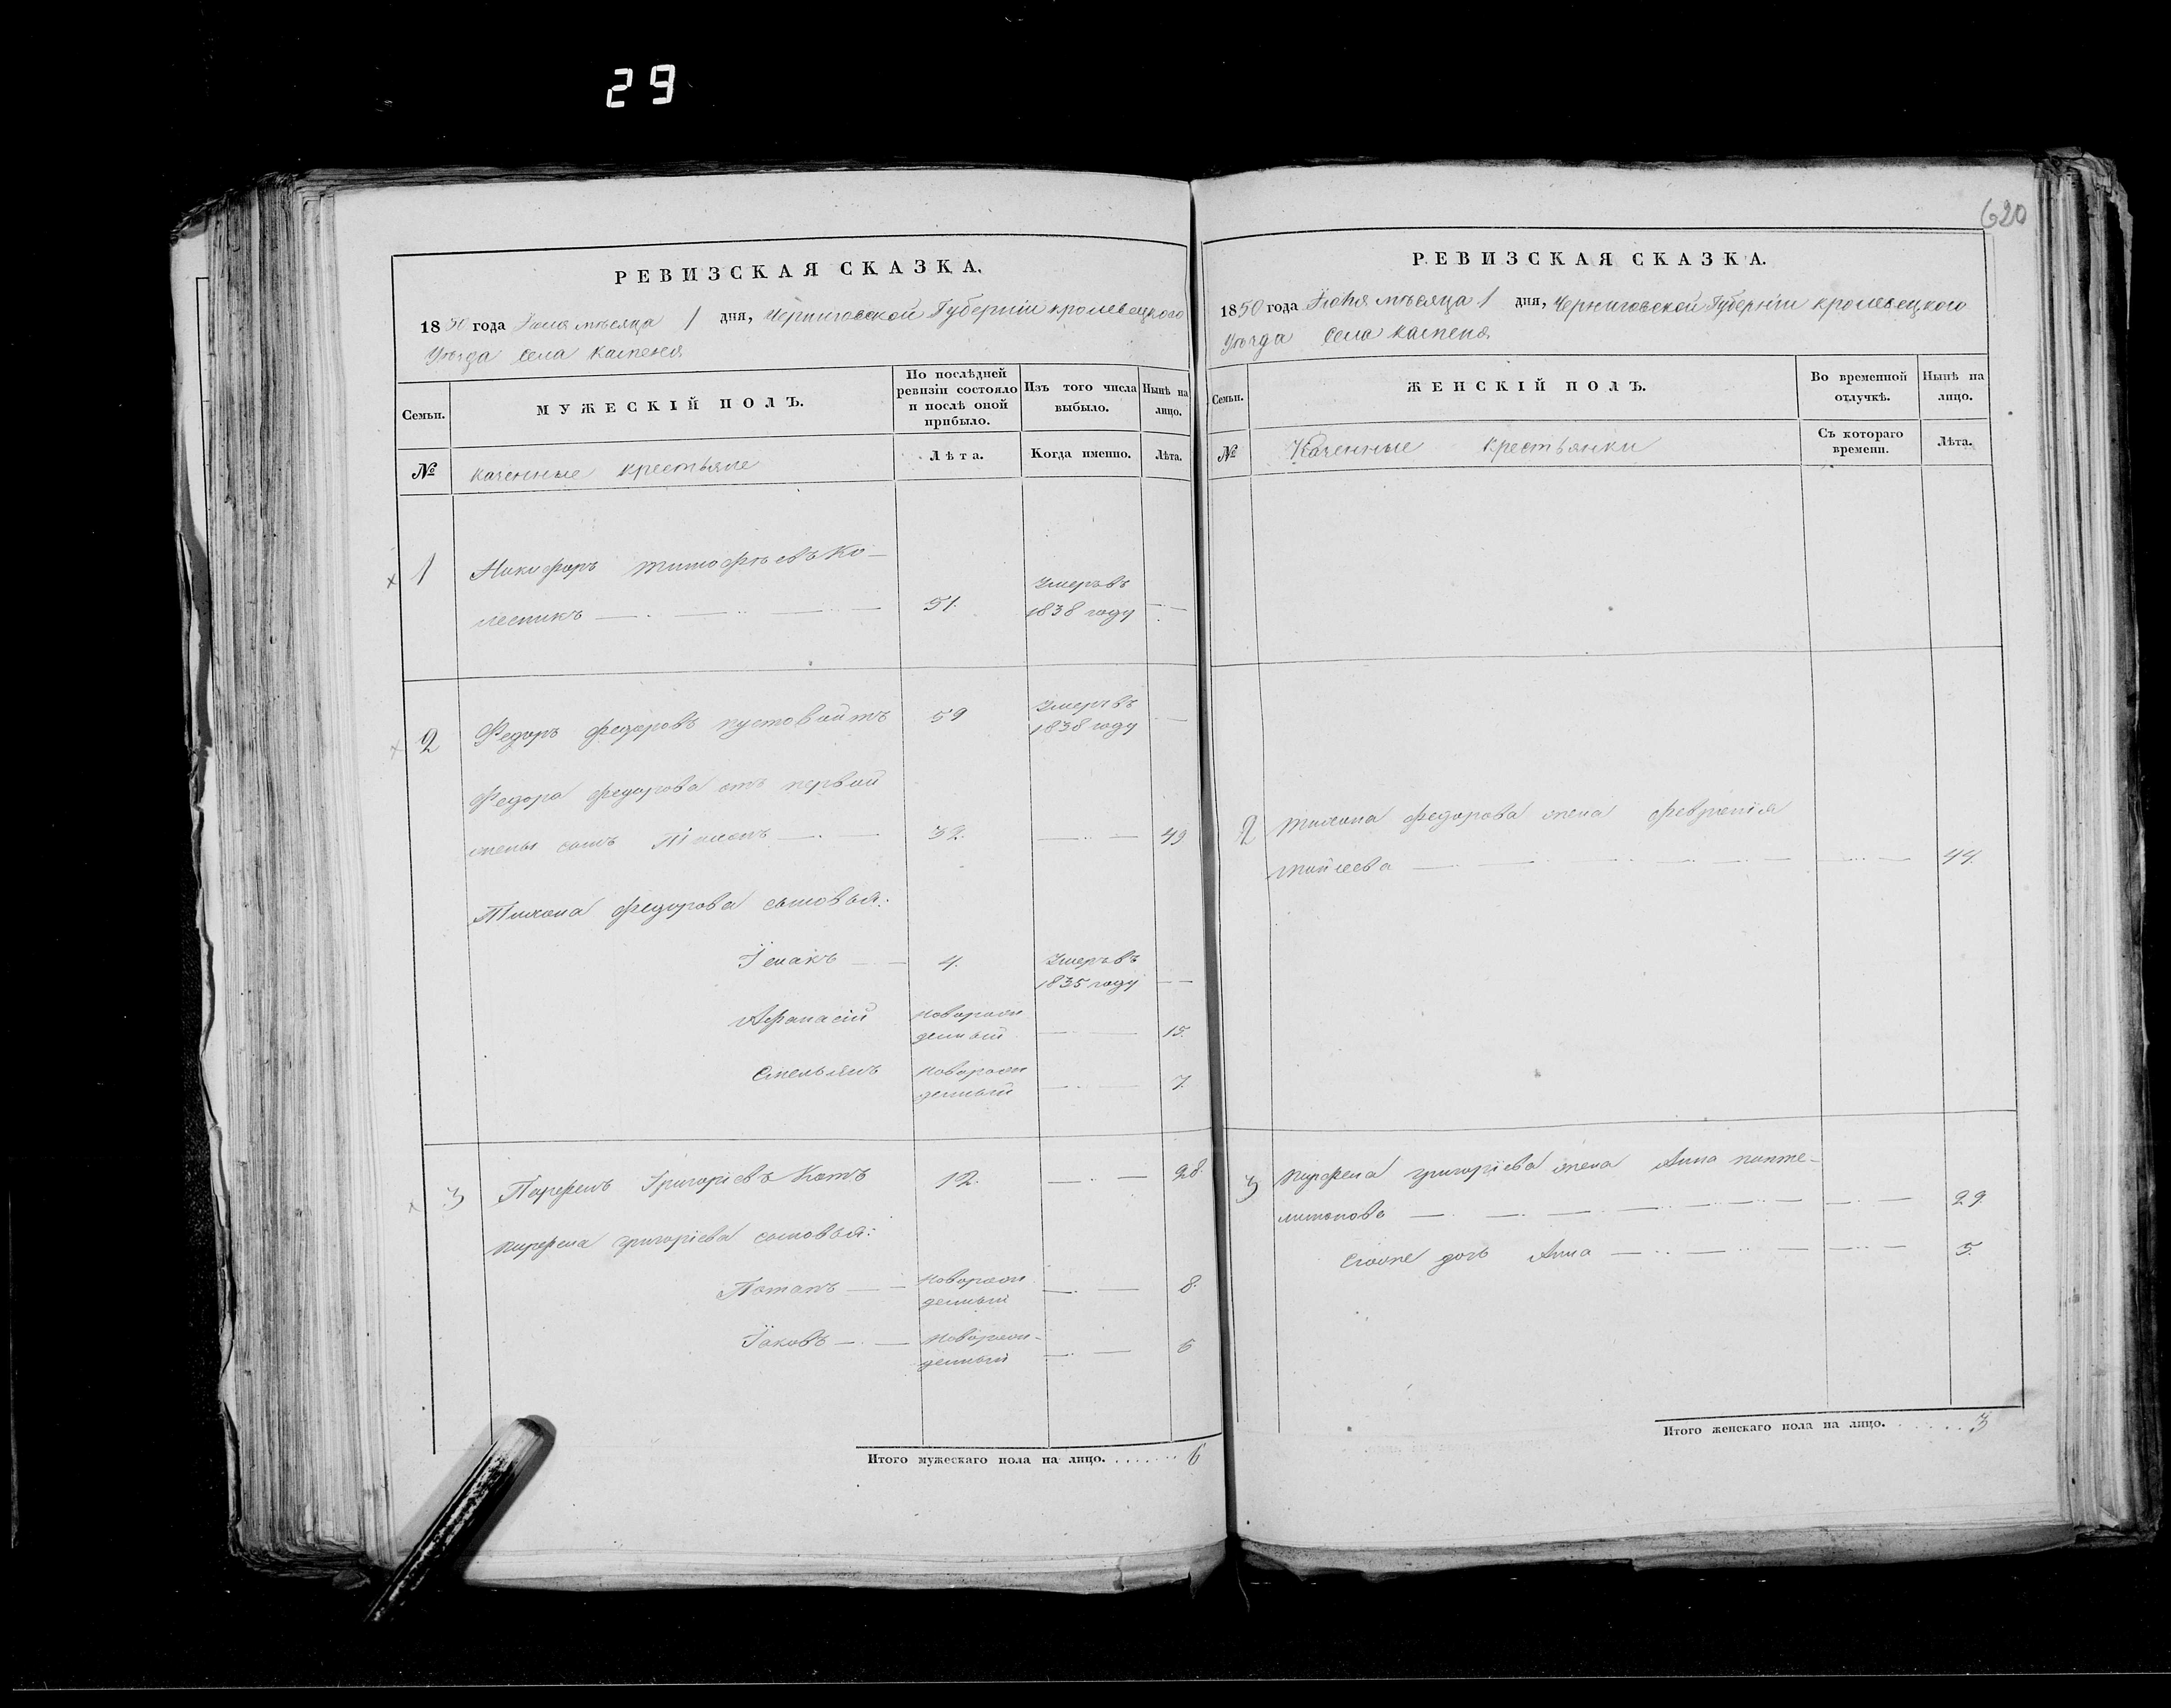 29
620
РЕВИЗСКАЯ СКАЗКА.
1850 года Іюня мѣсяца 1 дня, Черниговской Губерніи кролевецкого
Уѣзда села
Семьи.
МУЖЕСКІЙ ПОЛЪ.
По послѣдней
ревизіи состояло
и послѣ оной
прибыло.
Изъ того числа
выбыло.
Нынѣ на
лицо.
№
казенные крестьяне
Лѣта.
Когда именно.
Лѣта.
1
Никифоръ тимофѣевъ Ко-
лесникъ
51.
Умеръ въ
1838 году
2
Федоръ федоровъ пустовойтъ
59
Умеръ въ
1838 году
Федора федорова отъ первой
жены сынъ Тихонъ
32.
49
Тихона федорова сыновья:
Исаакъ
4.
Умеръ въ
1835 году
Афанасій
новорож
денный
15.
Емельянъ
новорож
денный
7.
3
Парфенъ Григоріевъ Котъ
12.
28.
парфена григоріева сыновья:
Потапъ
новорож
денный
8.
Іаковъ
новорож-
денный
6
Итого мужескаго пола на лицо. . . . . . . . 6
РЕВИЗСКАЯ СКАЗКА.
1850 года Іюня мѣсяца 1 дня, Черниговской Губерніи кролевецкого
Уѣзда села
Семьи.
ЖЕНСКІЙ ПОЛЪ.
Во временной
отлучкѣ.
Нынѣ на
лицо.
№
Казенные крестьянки
Съ котораго
времени.
Лѣта.
2
тихона федорова жена
44.
3
парфена григоріева жена Анна панте-
лимонова
29.
дочь Анна
5.
Итого женскаго пола на лицо. . . . . . . 3